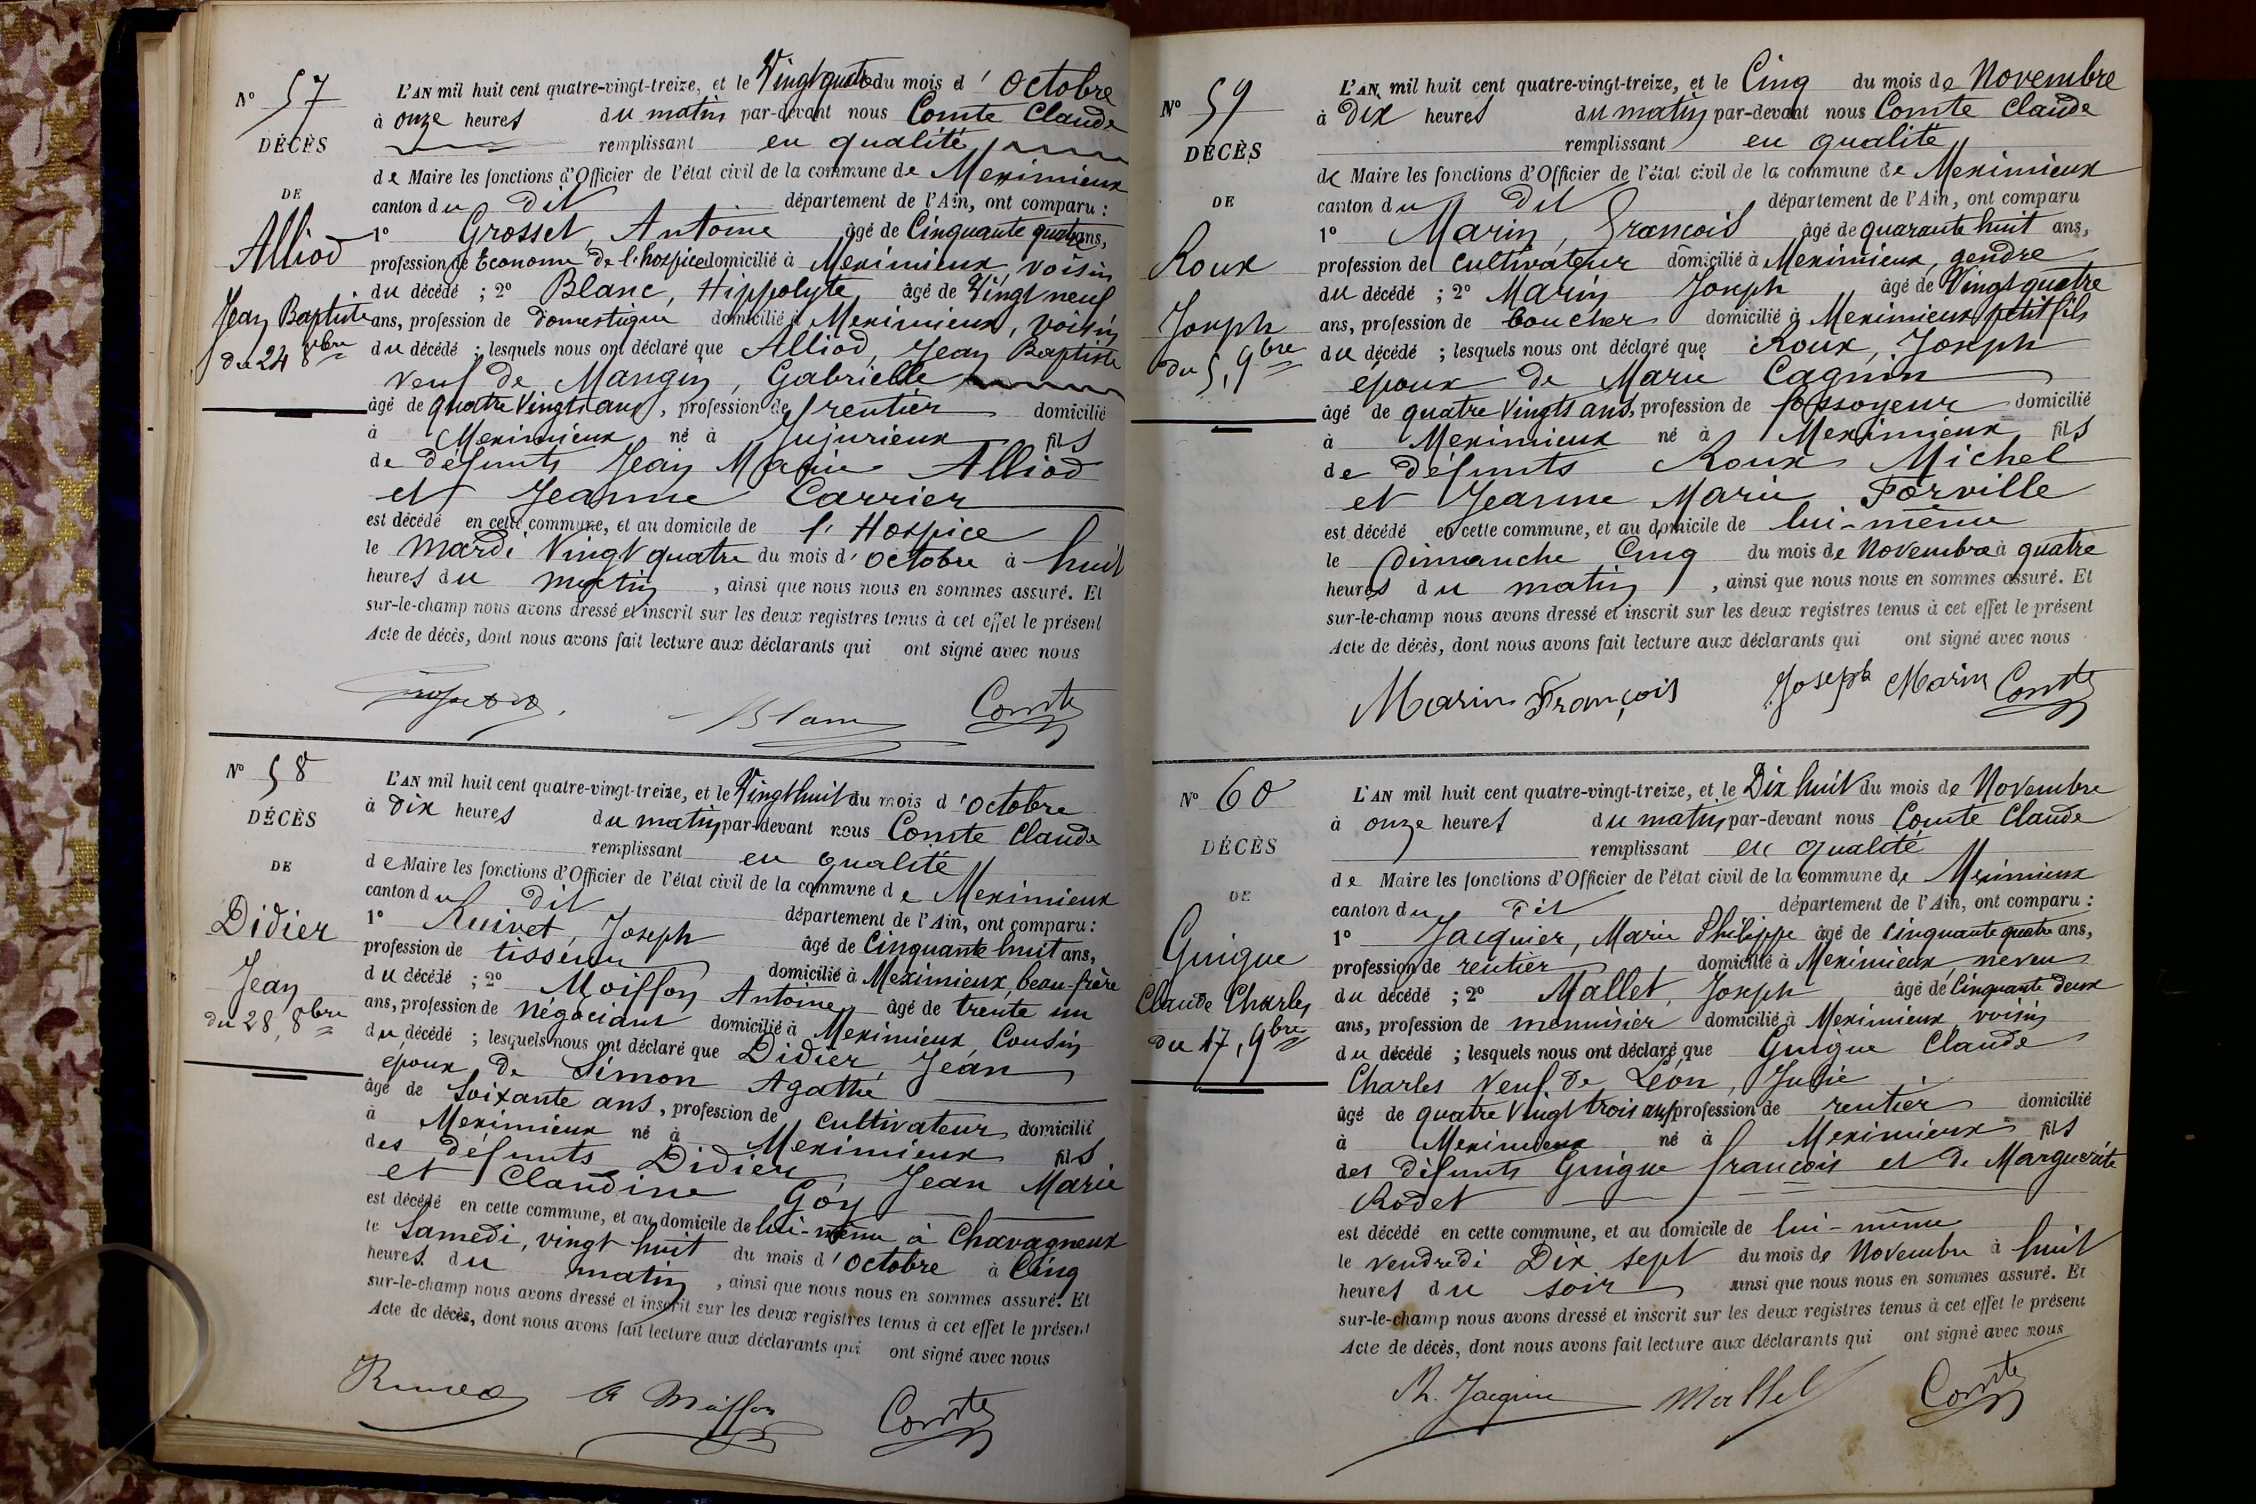 N° 57
DÉCÈS
DE
Alliod
Jean Baptiste
du 24 8bre
L'AN mil huit cent quatre-vingt-treize, et le Vingt quatre du mois d'Octobre
à onze heures du matin par-devant nous Comte Claude
remplissant en qualité
de Maire les fonctions d'Officier de l'état civil de la commune de Meximieux
canton du dit département de l'Ain, ont comparu :
1° Grosset, Antoine âgé de Cinquante quatre ans,
profession de Econome de l'hospice domicilié à Meximieux, voisin
du décédé ; 2° Blanc, Hippolyte âgé de Vingt neuf
ans, profession de domestique domicilié à Meximieux, voisin
du décédé ; lesquels nous ont déclaré que Alliod, Jean Baptiste
veuf de Mangin, Gabrielle
âgé de quatre Vingts ans, profession de rentier domicilié
à Meximieux né à Jujurieux fils
de défunts Jean Marie Alliod
et Jeanne Carrier
est décédé en cette commune, et au domicile de l'Hospice
le mardi Vingt quatre du mois d'octobre à huit
heures du matin, ainsi que nous nous en sommes assuré. Et
sur-le-champ nous avons dressé et inscrit sur les deux registres tenus à cet effet le présent
Acte de décès, dont nous avons fait lecture aux déclarants qui ont signé avec nous
Blanc Comte
N° 58
DÉCÈS
DE
Didier
Jean
du 28, 8bre
L'AN mil huit cent quatre-vingt-treize, et le Vingt huit du mois d'octobre
à dix heures du matin par-devant nous Comte Claude
remplissant en qualité
de Maire les fonctions d'Officier de l'état civil de la commune de Meximieux
canton du dit département de l'Ain, ont comparu :
1° Ruivet, Joseph âgé de Cinquante huit ans,
profession de tisseur domicilié à Meximieux, beau-frère
du décédé ; 2° Moiffon Antoine âgé de trente un
ans, profession de négociant domicilié à Meximieux, Cousin
du décédé ; lesquels nous ont déclaré que Didier, Jean
époux de Simon Agathe
âgé de Soixante ans, profession de cultivateur domicilié
à Meximieux né à Meximieux fils
des défunts Didier, Jean Marie
et Claudine Goy
est décédé en cette commune, et au domicile de lui-même à Chavagneux
le Samedi, vingt huit du mois d'octobre à Cinq
heures du matin, ainsi que nous nous en sommes assuré. Et
sur-le-champ nous avons dressé et inscrit sur les deux registres tenus à cet effet le présent
Acte de décès, dont nous avons fait lecture aux déclarants qui ont signé avec nous
A Moiffon Comte
N° 59
DÉCÈS
DE
Roux
Joseph
du 5, 9bre
L'AN mil huit cent quatre-vingt-treize, et le Cinq du mois de Novembre
à Dix heures du matin par-devant nous Comte Claude
remplissant en qualité
de Maire les fonctions d'Officier de l'état civil de la commune de Meximieux
canton du dit département de l'Ain, ont comparu
1° Marin, François âgé de quarante huit ans,
profession de cultivateur domicilié à Meximieux, gendre
du décédé ; 2° Marin Joseph âgé de Vingt quatre
ans, profession de boucher domicilié à Meximieux petit fils
du décédé ; lesquels nous ont déclaré que Roux, Joseph
époux de Marie Cagnin
âgé de quatre Vingts ans, profession de fossoyeur domicilié
à Meximieux né à Meximieux fils
de défunts Roux Michel
et Jeanne Marie Forville
est décédé en cette commune, et au domicile de lui-même
le Dimanche Cinq du mois de Novembre à quatre
heures du matin, ainsi que nous nous en sommes assuré. Et
sur-le-champ nous avons dressé et inscrit sur les deux registres tenus à cet effet le présent
Acte de décès, dont nous avons fait lecture aux déclarants qui ont signé avec nous
Marin François Joseph Marin Comte
N° 60
DÉCÈS
DE
Guigue
Claude Charles
du 17, 9bre
L'AN mil huit cent quatre-vingt-treize, et le Dix huit du mois de Novembre
à onze heures du matin par-devant nous Comte Claude
remplissant en qualité
de Maire les fonctions d'Officier de l'état civil de la commune de Meximieux
canton du dit département de l'Ain, ont comparu :
1° Jacquier, Marie Philippe âgé de cinquante quatre ans,
profession de rentier domicilié à Meximieux neveu
du décédé ; 2° Mallet, Joseph âgé de Cinquante deux
ans, profession de menuisier domicilié à Meximieux voisin
du décédé ; lesquels nous ont déclaré que Guigue Claude
Charles veuf de Léon, Julie
âgé de quatre Vingt trois ans profession de rentier domicilié
à Meximieux né à Meximieux fils
des défunts Guigue françois et de Marguerite
Rodet
est décédé en cette commune, et au domicile de lui-même
le vendredi Dix sept du mois de Novembre à huit
heures du soir ainsi que nous nous en sommes assuré. Et
sur-le-champ nous avons dressé et inscrit sur les deux registres tenus à cet effet le présent
Acte de décès, dont nous avons fait lecture aux déclarants qui ont signé avec nous
Ph. Jacquier Mallet Comte